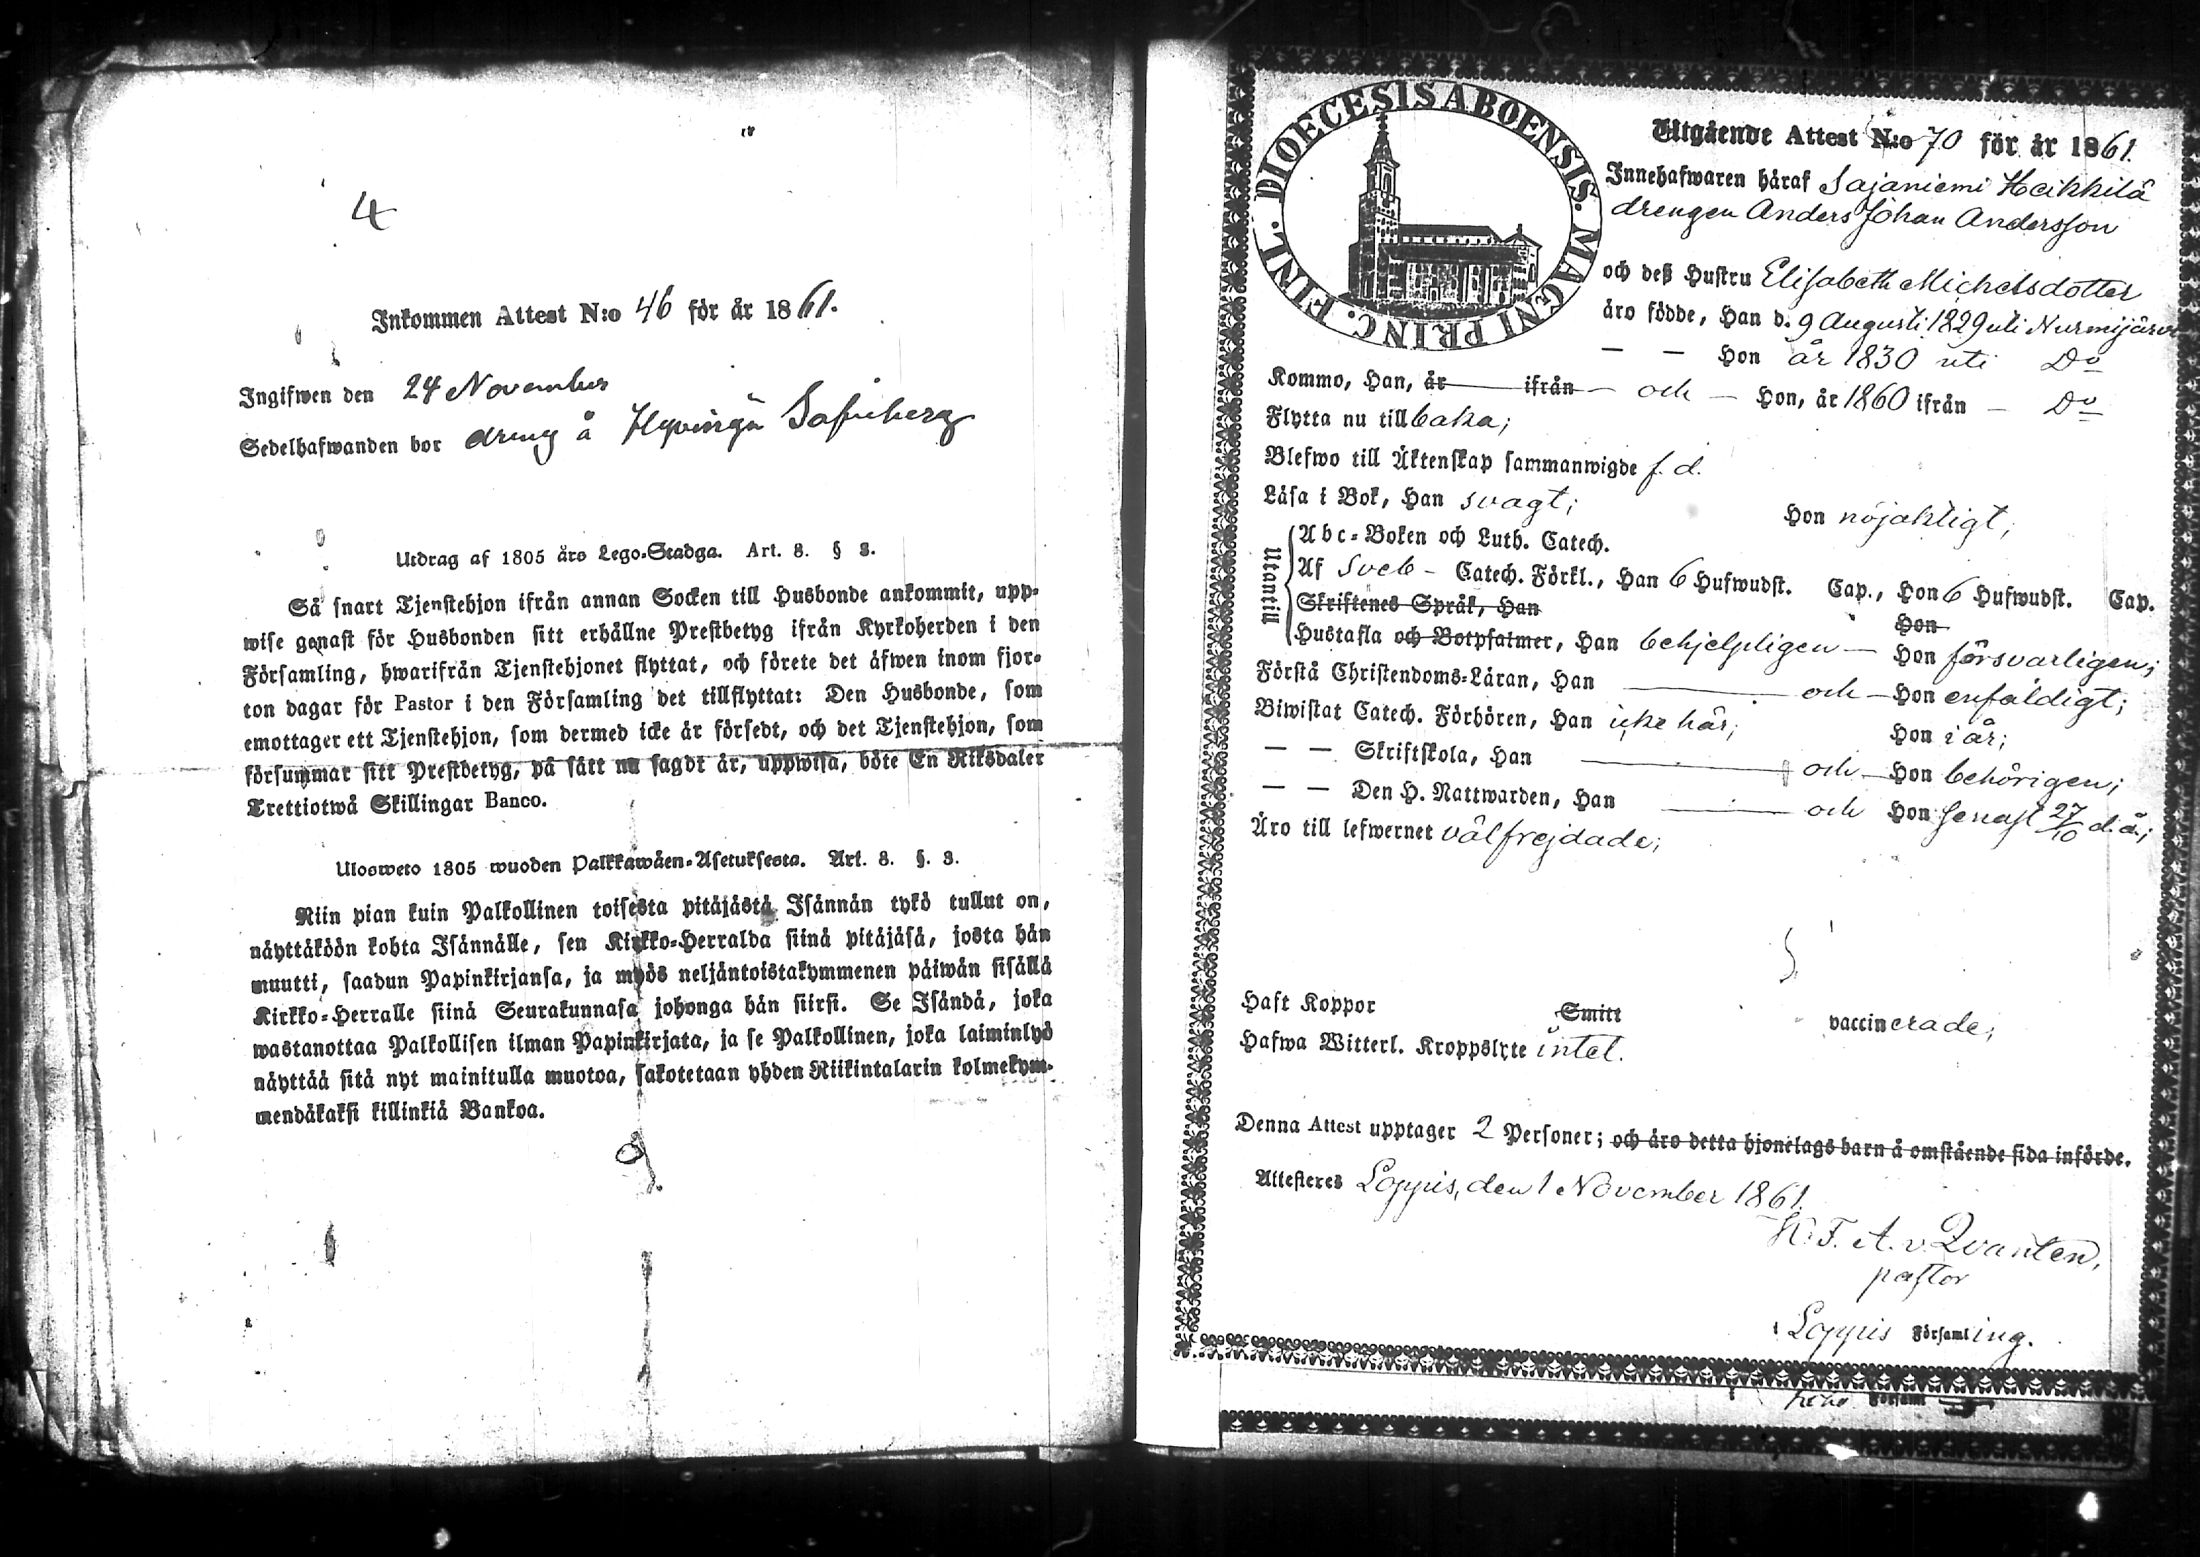 4
Inkommen Attest N:o 46 för år 1861.
Ingifwen den 24 November
Sedelhafwanden bor dreng å Hyvinge
Utdrag af 1805 års Lego-Stadga. Art. 8. § 3.
Så snart Tjenstehjon ifrån annan Socken till Husbonde ankommit, upp-
wise genast för Husbonden sitt erhållne Prestbetyg ifrån Kyrkoherden i den
Församling, hwarifrån Tjenstehjonet flyttat, och förete det äfwen inom fjor-
ton dagar för Pastor i den Församling det tillflyttat: Den Husbonde, som
emottager ett Tjenstehjon, som dermed icke är försedt, och det Tjenstehjon, som
försummar sitt Prestbetyg, på sätt nu sagdt är, uppwisa, böte En Riksdaler
Trettiotwå Skillingar Banco.
Ulosweto 1805 wuoden Palkkawäen-Asetuksesta. Art. 8. §. 3.
Niin pian kuin Palkollinen toisesta pitäjästä Isännän tykö tullut on,
näyttäköön kohta Isännälle, sen Kirkko-Herralda siinä pitäjäsä, josta hän
muutti, saadun Papinkirjansa, ja myös neljäntoistakymmenen päiwän sisällä
Kirkko-Herralle siinä Seurakunnasa johonga hän siirsi. Se Isändä, joka
wastanottaa Palkollisen ilman Papinkirjata, ja se Palkollinen, joka laiminlyö
näyttää sitä nyt mainitulla muotoa, sakotetaan yhden Riikintalarin kolmekym-
mendäkaksi killinkiä Bankoa.
DIOECESIS ABOENSIS. MAGNI PRINC. FINL.
Utgående Attest N:o 70 för år 1861.
Innehafwaren häraf Sajaniemi Heikkilä
drengen Anders Johan Andersson
och deß Hustru Elisabeth Michelsdotter
äro födde, Han d. 9 Augusti 1829 uti Nurmijärvi
— — Hon år 1830 uti Do
Kommo, Han, år ifrån — och — Hon, år 1860 ifrån — Do
Flytta nu tillbaka;
Blefwo till Äktenskap sammanwigde f. d.
Läsa i Bok, Han svagt; Hon nöjaktigt;
Utantill
Abc-Boken och Luth. Catech.
Af Sveb — Catech. Förkl., Han 6 Hufwudst. Cap., Hon 6 Hufwudst. Cap.
Skriftenes Språk, Han Hon
Hustafla och Botpsalmer, Han behjelpligen — Hon försvarligen;
Förstå Christendoms-Läran, Han — och — Hon enfaldigt;
Biwistat Catech. Förhören, Han icke här; Hon i år;
— — Skriftskola, Han — och — Hon behörigen;
— — Den H. Nattwarden, Han — och Hon senast 27/10 d. å.;
Äro till lefwernet välfrejdade;
Haft Koppor Smitt vaccinerade;
Hafwa Witterl. Kroppslyte intet.
Denna Attest upptager 2 Personer; och äro detta hjonelags barn å omstående sida införde.
Attesteres Loppis, den 1 November 1861.
K. F. A. v. Qvanten,
pastor
i Loppis Församling.
Församl